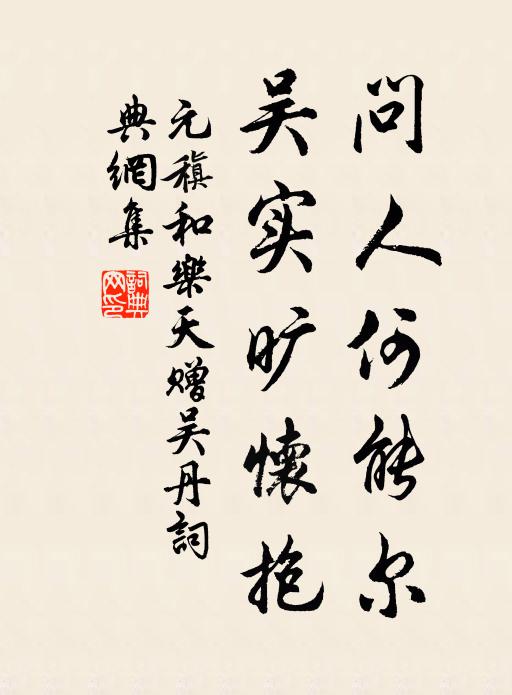 问人何能尔
吴实旷懷抱
元稹和樂天赠吴丹詞
典網集
詞典
网印